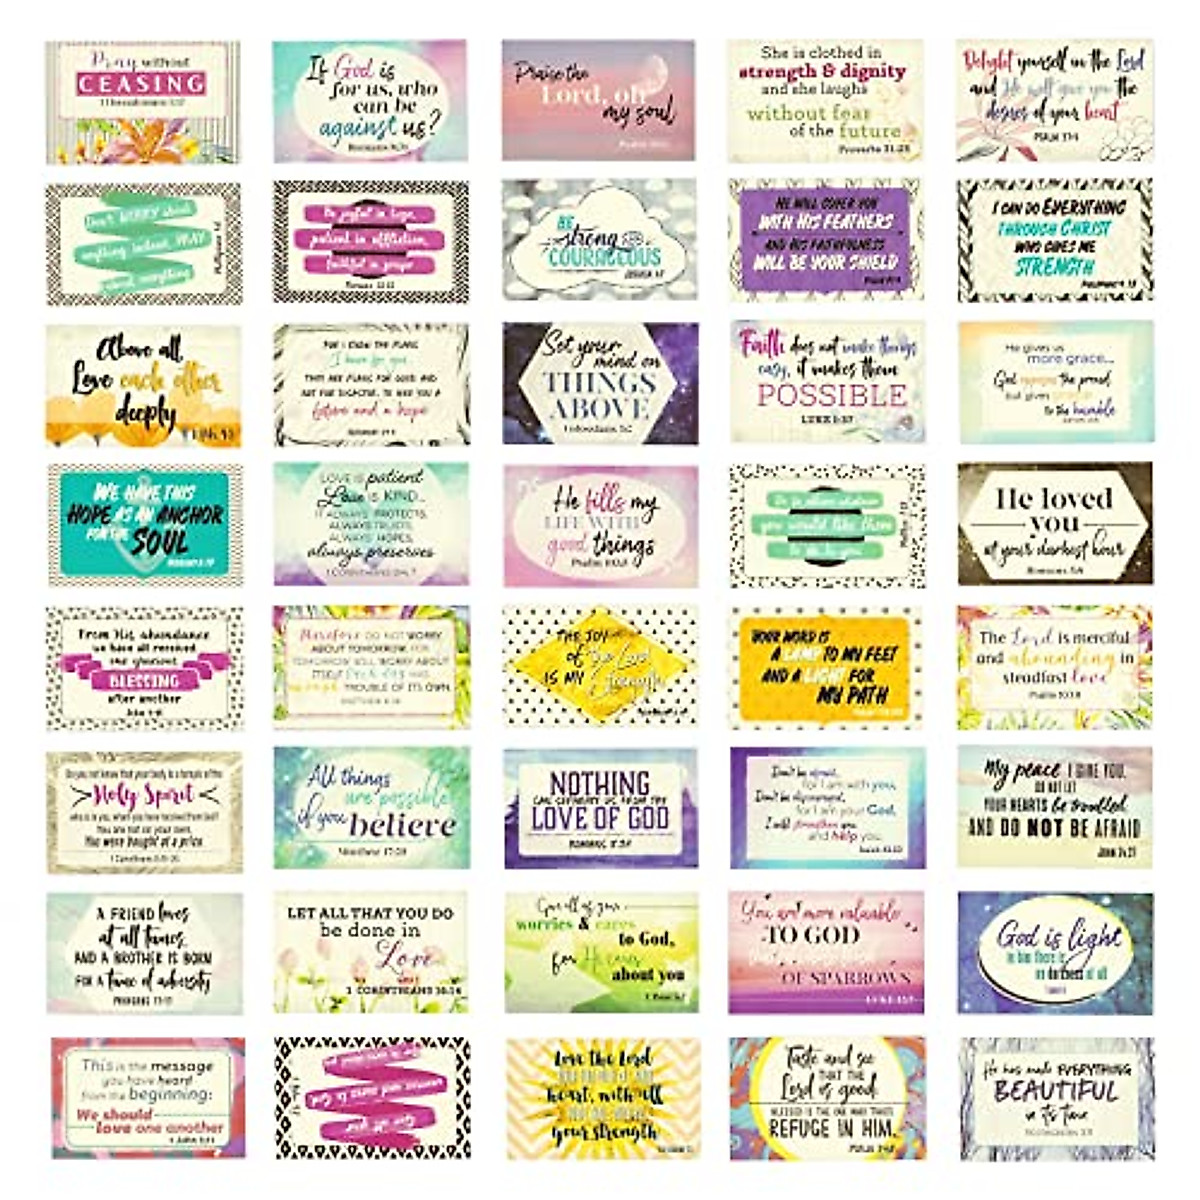 Pray without
CEASING
If God is
for us, who
can be
against us?
Praise the
Lord, oh
my soul
She is clothed in
strength & dignity
and she laughs
without fear
of the future
Proverbs 31:25
Delight yourself in the Lord
and He will give you the
desires of your heart
Don't WORRY about
anything instead, PRAY
about everything
Be joyful in hope,
patient in affliction,
faithful in prayer
BE
strong and
COURAGEOUS
HE WILL COVER YOU
WITH HIS FEATHERS
AND HIS FAITHFULNESS
WILL BE YOUR SHIELD
I CAN DO EVERYTHING
THROUGH CHRIST
WHO GIVES ME
STRENGTH
Above all,
Love each other
deeply
FOR I KNOW THE PLANS
I have for you
THEY ARE PLANS FOR GOOD AND
NOT FOR DISASTER, TO GIVE YOU A
future and a hope
Set your
mind on
THINGS
ABOVE
Colossians 3:2
Faith does not make things
easy, it makes them
POSSIBLE
LUKE 1:37
He gives us
more grace...
God opposes the proud
but gives
to the humble
WE HAVE THIS
HOPE AS AN ANCHOR
FOR THE
SOUL
LOVE IS patient
Love IS KIND...
IT ALWAYS PROTECTS,
ALWAYS TRUSTS,
ALWAYS HOPES,
always preserves
He fills my
LIFE WITH
good things
Do to others whatever
you would like them
to do to you
He loved
you
at your darkest hour
Romans 5:8
From His abundance
we have all received
one glorious
BLESSING
after another
Therefore DO NOT WORRY
ABOUT TOMORROW, FOR
TOMORROW WILL WORRY ABOUT
ITSELF
TROUBLE OF ITS OWN.
THE JOY
of The Lord
IS MY Strength
YOUR WORD IS
A LAMP TO MY FEET
AND A LIGHT FOR
MY PATH
The Lord is merciful
and abounding in
steadfast love
Do you not know that your body is a temple of the
Holy Spirit
who is in you, whom you have received from God?
You are not your own,
You were bought at a price.
All things
are possible
if you believe
NOTHING
CAN SEPARATE US FROM THE
LOVE OF GOD
Don't be afraid,
for I am with you,
Don't be discouraged,
for I am your God,
I will strengthen you
and help you.
My peace I GIVE YOU.
DO NOT LET
YOUR HEARTS be troubled
AND DO NOT BE AFRAID
JOHN 14:27
A FRIEND loves
at all times,
AND A BROTHER IS BORN
FOR A time of adversity
PROVERBS 17:17
LET ALL THAT YOU DO
be done in
Love
1 CORINTHIANS 16:14
Give all of your
worries & cares
to God,
for He cares
about you
You are more valuable
TO GOD
OF SPARROWS
God is light
in him there is
no darkness at all
This is the message
you have heard
from the beginning:
We should
love one another
Love the Lord
heart, with all
your strength
Taste and see
THAT THE
Lord is good.
BLESSED IS THE ONE WHO TAKES
REFUGE IN HIM.
He has made EVERYTHING
BEAUTIFUL
in its time